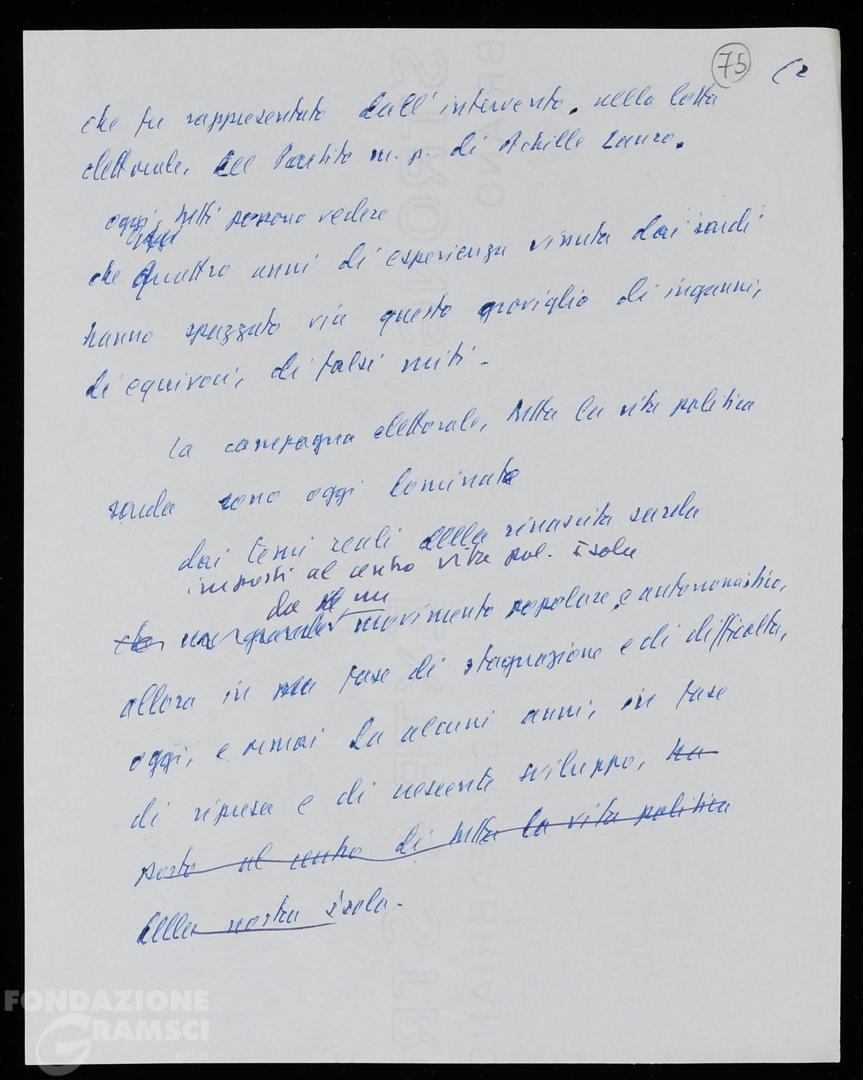 75 (2
che fu rappresentato dall'intervento, nella lotta
elettorale, del Partito m. p. di Achille Lauro.
oggi, tutti possono vedere
oggi
che quattro anni di esperienza vissuta dai sardi
hanno spazzato via questo groviglio di inganni,
di equivoci, di falsi miti -
La campagna elettorale, tutta la vita politica
sarda sono oggi dominate
dai temi reali della rinascita sarda
imposti al centro vita pol. isola
da un
che un grande movimento popolare e autonomistico,
allora in una fase di stagnazione e di difficoltà,
oggi, e ormai da alcuni anni, in fase
di ripresa e di crescente sviluppo, ha
posto al centro di tutta la vita politica
della nostra isola -
FONDAZIONE
GRAMSCI
onlus